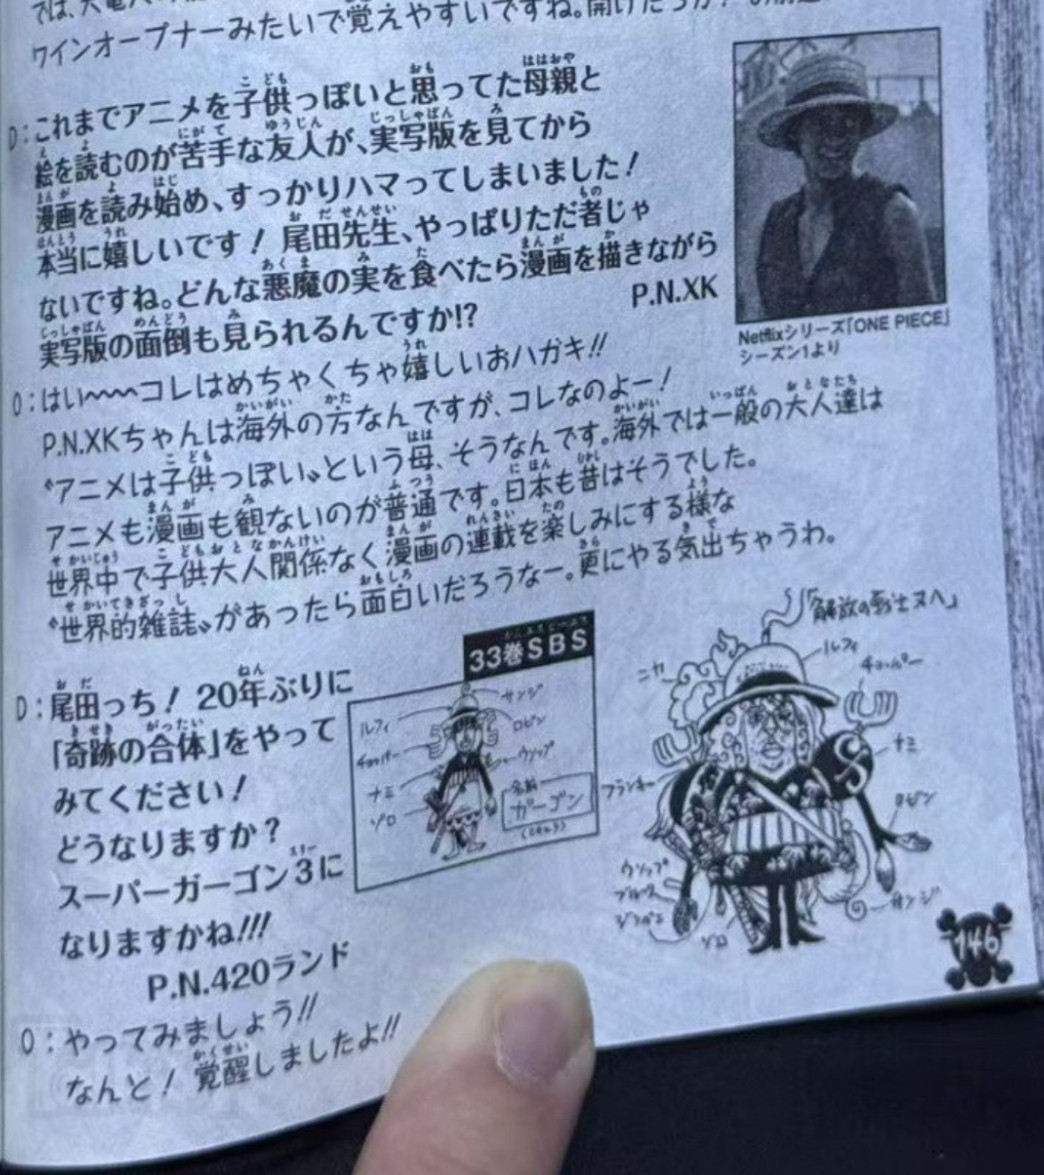 ワインオープナーみたいで覚えやすいですね。開けたら
D:これまでアニメを子供っぽいと思ってた母親と
絵を読むのが苦手な友人が、実写版を見てから
漫画を読み始め、すっかりハマってしまいました!
本当に嬉しいです! 尾田先生、やっぱりただ者じゃ
ないですね。どんな悪魔の実を食べたら漫画を描きながら
実写版の面倒も見られるんですか!?
P.N.XK
Netflixシリーズ「ONE PIECE」
シーズン1より
O:はい〜〜コレはめちゃくちゃ嬉しいおハガキ!!
P.N.XKちゃんは海外の方なんですが、コレなのよー!
“アニメは子供っぽい”という母、そうなんです。海外では一般の大人達は
アニメも漫画も観ないのが普通です。日本も昔はそうでした。
世界中で子供大人関係なく漫画の連載を楽しみにする様な
“世界的雑誌”があったら面白いだろうなー。更にやる気出ちゃうわ。
D:尾田っち! 20年ぶりに
「奇跡の合体」をやって
みてください!
どうなりますか?
スーパーガーゴン3に
なりますかね!!!
P.N.420ランド
O:やってみましょう!!
なんと! 覚醒しましたよ!!
33巻SBS
サンジ
ルフィ
ロビン
チョッパー
ウソップ
ナミ
ゾロ
名前
ガーゴン
ニカ
ルフィ
チョッパー
ナミ
フランキー
ロビン
ウソップ
ブルック
ジンベエ
ゾロ
サンジ
146